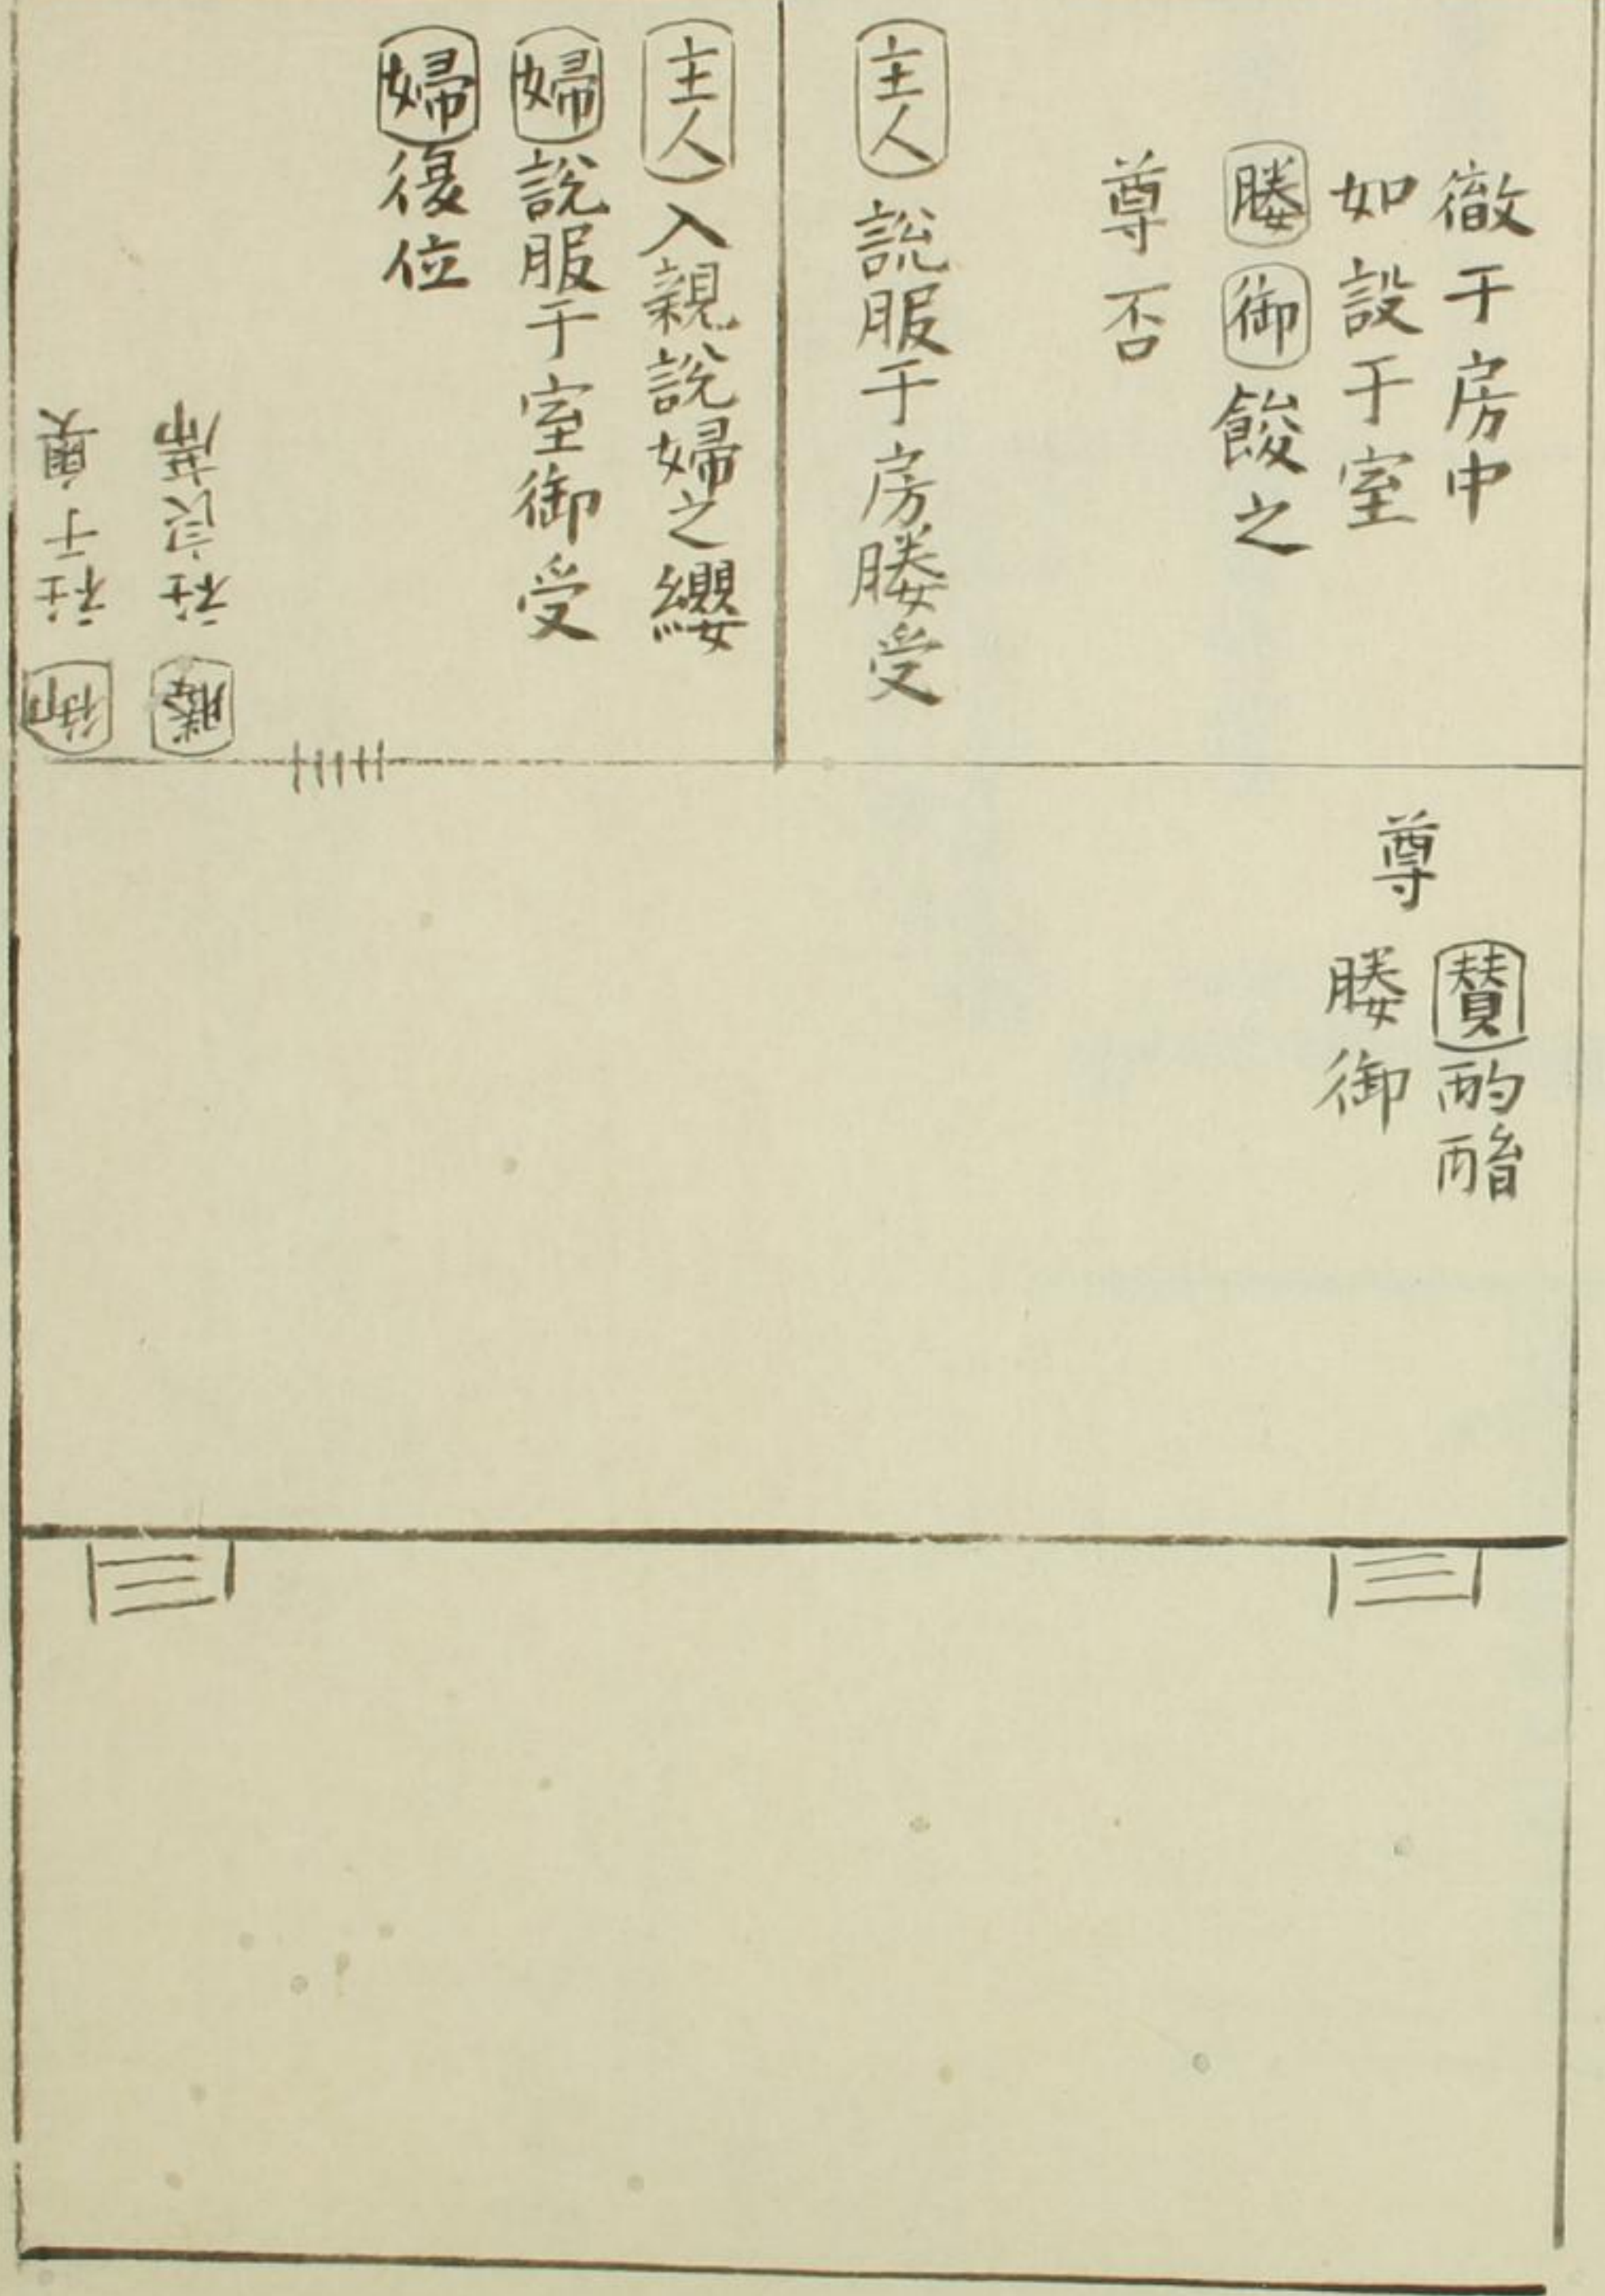 徹于房中
如設于室
媵御餕之
尊否
主人說服于房媵受
主人入親說婦之纓
婦說服于室御受
婦復位
媵衽良席
御衽于奧
尊
賛酌酳
媵御